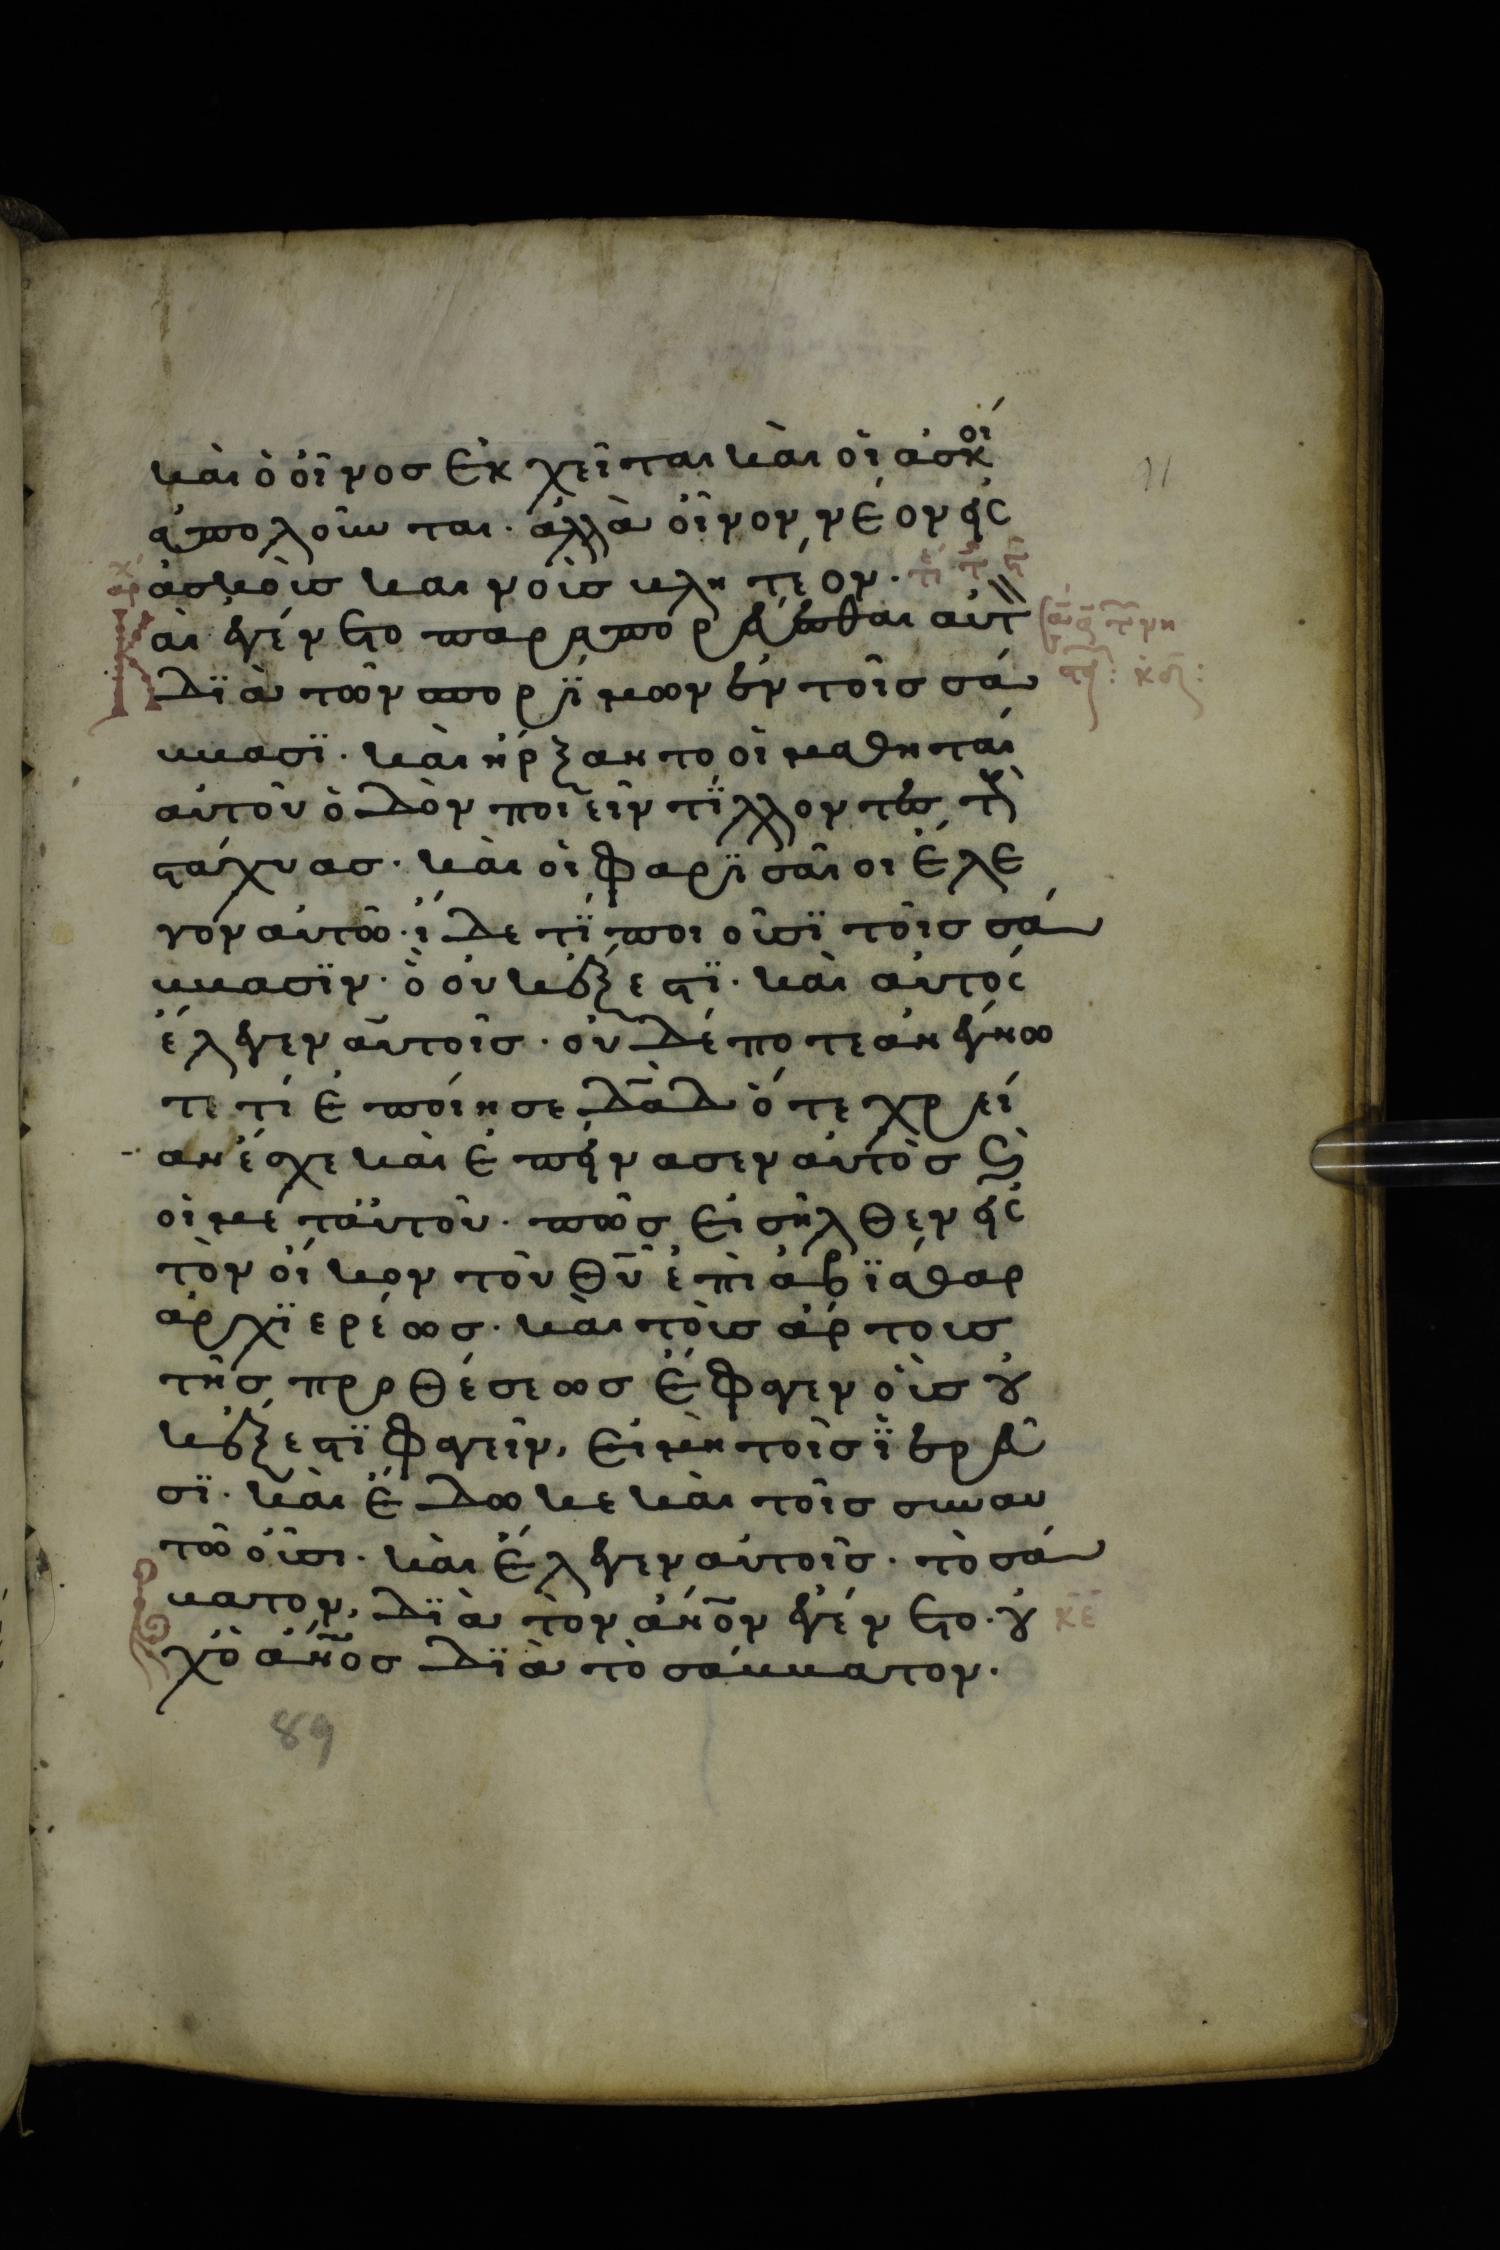 καὶ ὁ οἶνος ἐκχεῖται καὶ οἱ ἀσκοί
ἀπολοῦνται· ἀλλὰ οἶνον νέον εἰς
ἀσκοὺς καινοὺς βλητέον·
αὶ ἐγένετο παραπορεύεσθαι αὐτ
διὰ τῶν σπορίμων ἐν τοῖς σά
ββασϊ· καὶ ἤρξαντο οἱ μαθηταὶ
αὐτοῦ ὁδὸν ποιεῖν τΐλλοντες τοὺς
στάχυας· καὶ οἱ φαρϊσαῖοι ἔλε
γον αὐτῶ· ἴδε τΐ ποιοῦσϊ τοῖς σά
ββασϊν· ὃ οὐκ ἔξεστϊ· καὶ αὐτὸς
ἔλεγεν αὐτοῖς· οὐδέποτε ἀνέγνω
τε τί ἐποίησε δᾱδ ὅτε χρεί
αν ἔσχε καὶ ἐπείνασεν αὐτὸς καὶ
οἱ μετ αὐτοῦ· πῶς εἰσῆλθεν εἰς
τὸν οἶκον τοῦ θῡ ἐπὶ ἀβϊάθαρ
ἀρχϊερέως· καὶ τοὺς ἄρτους
τῆς προθέσεως ἔφαγεν οὓς οὐ
κ ἔξεστϊ φαγεῖν, εἰ μὴ τοῖς ϊερεῦ
σϊ· καὶ ἔδωκε καὶ τοῖς συν αυ
τῶ οὖσι· καὶ ἔλεγεν αὐτοῖς· τὸ σά
βατον, δϊὰ τὸν ἄνο̄ν ἐγένετο· οὐ
χ ὁ ἄνο̄ς δϊὰ τὸ σάββατον·
κε
89